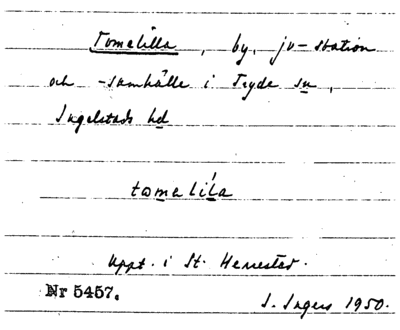 Tomelilla, by, jv-station
och -samhälle i Tryde sn,
Ingelstads hd
tomelila
Uppt. i St. Herrestad.
Nr 5457.
I. Ingers 1950.